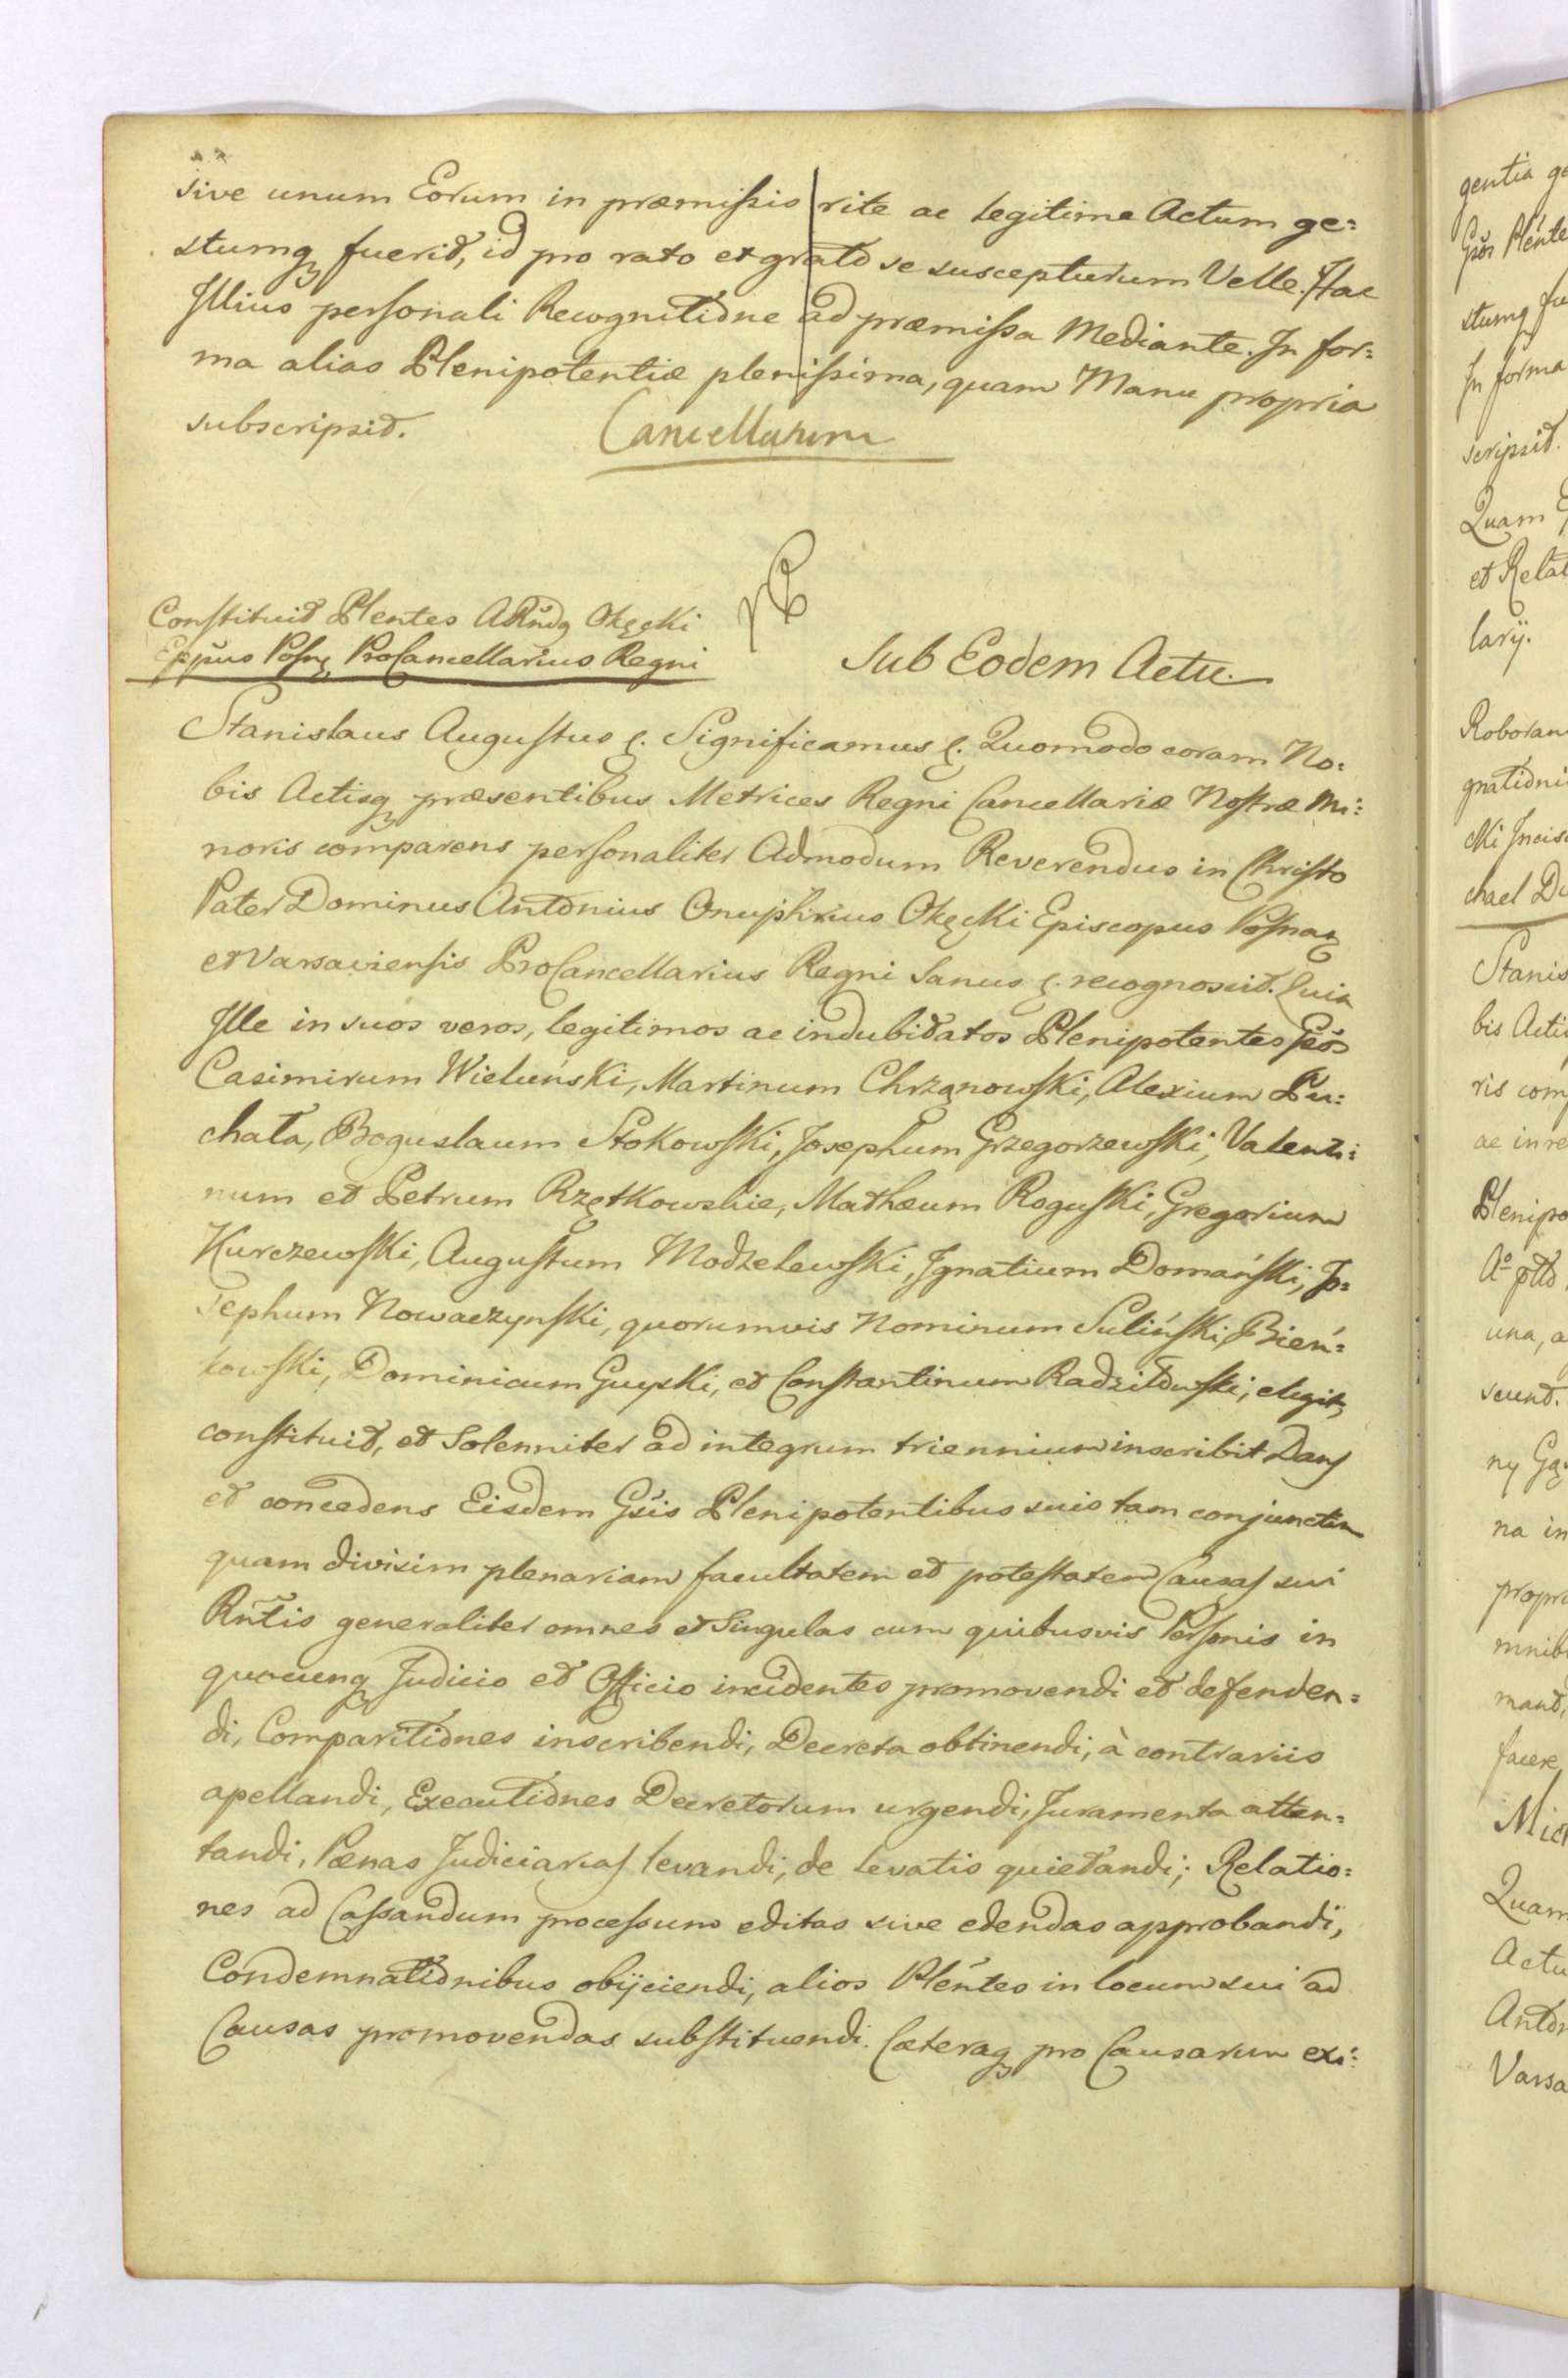 sive unum Eorum in præmissis rite ac legitime Actum ge=
stumq fuerit, id pro rato et grato se suscepturum Velle. Hac
Illius personali Recognitione ad præmissa Mediante. In for=
ma alias Plenipotentiæ plenissima, quam Manu propria
subscripsit.
Cancellatum
Constituit Plentes ARndq Okęcki
Eppus Posnę ProCancellarius Regni
Sub Eodem Actu.
Stanislaus Augustus &. Significamus &. Quomodo coram No=
bis Actisq præsentibus Metrices Regni Cancellariæ Nostræ Mi=
noris comparens personaliter Admodum Reverendus in Christo
Pater Dominus Antonius Onuphrius Okęcki Episcopus Posnaę
et Varsaviensis ProCancellarius Regni Sanus &. recognoscit. Quia
Ille in suos veros, legitimos ac indubitatos Plenipotentes Gsos
Casimirum Wieluński, Martinum Chrząnowski, Alexium Pu=
chała, Boguslaum Stokowski, Josephum Grzegorzewski, Valenti=
num et Petrum Rzętkowskie, Mathæum Roguski, Gregorium
Kurczewski, Augustum Modzelewski, Ignatium Domański, Jo=
sephum Nowaczynski, quorumvis Nominum Suliński, Bień=
kowski, Dominicum Guyski, et Constantinum Radziłowski; elegit,
constituit, et Solenniter ad integrum triennium inscribit Dans
et concedens Eisdem Gsis Plenipotentibus suis tam conjunctim
quam divisim plenariam facultatem et potestatem Causas sui
Rntis generaliter omnes et Singulas cum quibusvis Personis in
quocunq Judicio et Officio incidentes promovendi et defenden=
di, Comparitiones inscribendi, Decreta obtinendi, à contrariis
apellandi, Executiones Decretorum urgendi, Juramenta atten=
tandi, Pænas Judiciarias levandi, de levatis quietandi; Relatio=
nes ad Cassandum processum editas sive edendas approbandi,
Condemnationibus obijciendi, alios Plentes in locum sui ad
Causas promovendas substituendi. Cæteraq pro Causarum exi=
gentia
Gsos Plente
stumq
In forma
scripsit.
Quam
et Relat
larij.
Roboran
gnationi
cki Incis
chael
Stanis
bis Acti
ris com
ac in re
Plenipo
una, a
scunt.
na in
propr
mnib
mant,
facere
Mic
Quam
Actu
Anton
Varsa